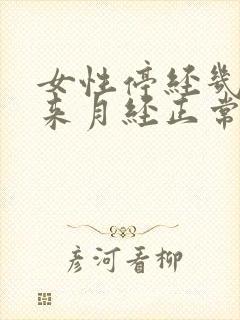 女性停经几
来月经正常
彦河看柳